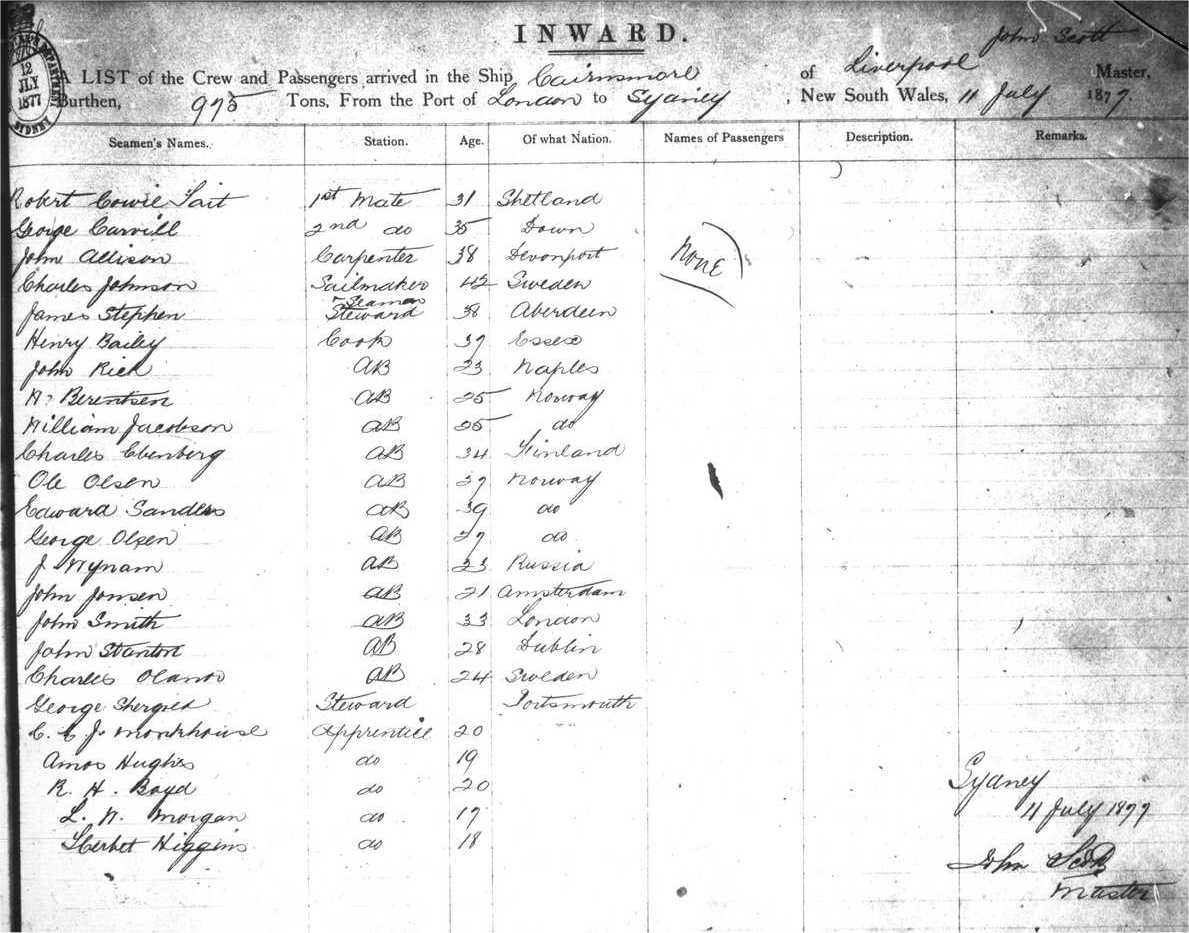 INWARD.
John Scott
A LIST of the Crew and Passengers arrived in the Ship Cairnsmore of Liverpool Master,
Burthen, 995 Tons, From the Port of London to Sydney, New South Wales, 11 July 1877.
12
JLY
1877
SYDNEY
Seamen's Names. Station. Age. Of what Nation. Names of Passengers Description. Remarks.
Robert Cowie Tait 1st Mate 31 Shetland
George Carvill 2nd do 35 Down
John Allison Carpenter 38 Devonport
None
Charles Johnson Sailmaker 42 Sweden
James Stephen Steward & Seaman 38 Aberdeen
Henry Bailey Cook 37 Essex
John Rich AB 23 Naples
N. Berentsen AB 25 Norway
William Jacobson AB 25 do
Charles Ebenberg AB 34 Finland
Ole Olsen AB 27 Norway
Edward Sanders AB 39 do
George Olsen AB 27 do
J Wynam AB 23 Russia
John Jonsen AB 21 Amsterdam
John Smith AB 33 London
John Stanton AB 28 Dublin
Charles AB 24 Sweden
George Steward Portsmouth
C. C. J. Monkhouse Apprentice 20
Amos Hughes do 19
R. H. Boyd do 20
L. W. Morgan do 17
Herbet Higgins do 18
Sydney
11 July 1877
John Scott
Master